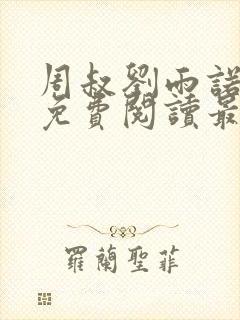 周叔劉雨諾
免費閱讀最
羅蘭聖菲